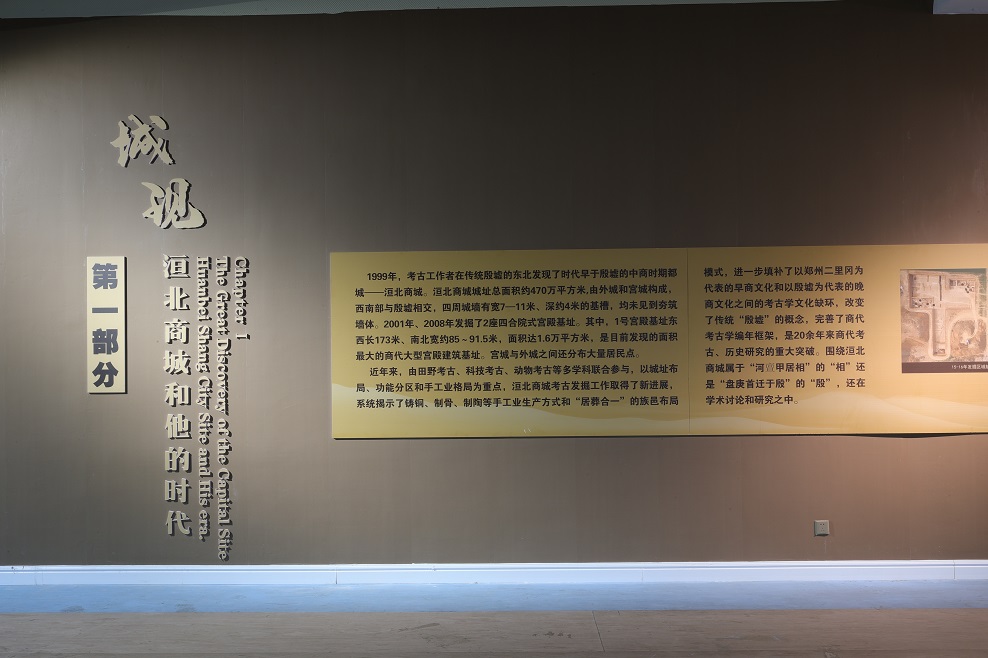 城现
第一部分
洹北商城和他的时代
Chapter 1
The Great Discovery of the Capital Site
Huanbei Shang City Site and His era.
1999年，考古工作者在传统殷墟的东北发现了时代早于殷墟的中商时期都
城——洹北商城。洹北商城城址总面积约470万平方米，由外城和宫城构成，
西南部与殷墟相交，四周城墙有宽7—11米、深约4米的基槽，均未见到夯筑
墙体。2001年、2008年发掘了2座四合院式宫殿基址。其中，1号宫殿基址东
西长173米、南北宽约85～91.5米，面积达1.6万平方米，是目前发现的面积
最大的商代大型宫殿建筑基址。宫城与外城之间还分布大量居民点。
近年来，由田野考古、科技考古、动物考古等多学科联合参与，以城址布
局、功能分区和手工业格局为重点，洹北商城考古发掘工作取得了新进展，
系统揭示了铸铜、制骨、制陶等手工业生产方式和“居葬合一”的族邑布局
模式，进一步填补了以郑州二里冈为
代表的早商文化和以殷墟为代表的晚
商文化之间的考古学文化缺环，改变
了传统“殷墟”的概念，完善了商代
考古学编年框架，是20余年来商代考
古、历史研究的重大突破。围绕洹北
商城属于“河亶甲居相”的“相”还
是“盘庚首迁于殷”的“殷”，还在
学术讨论和研究之中。